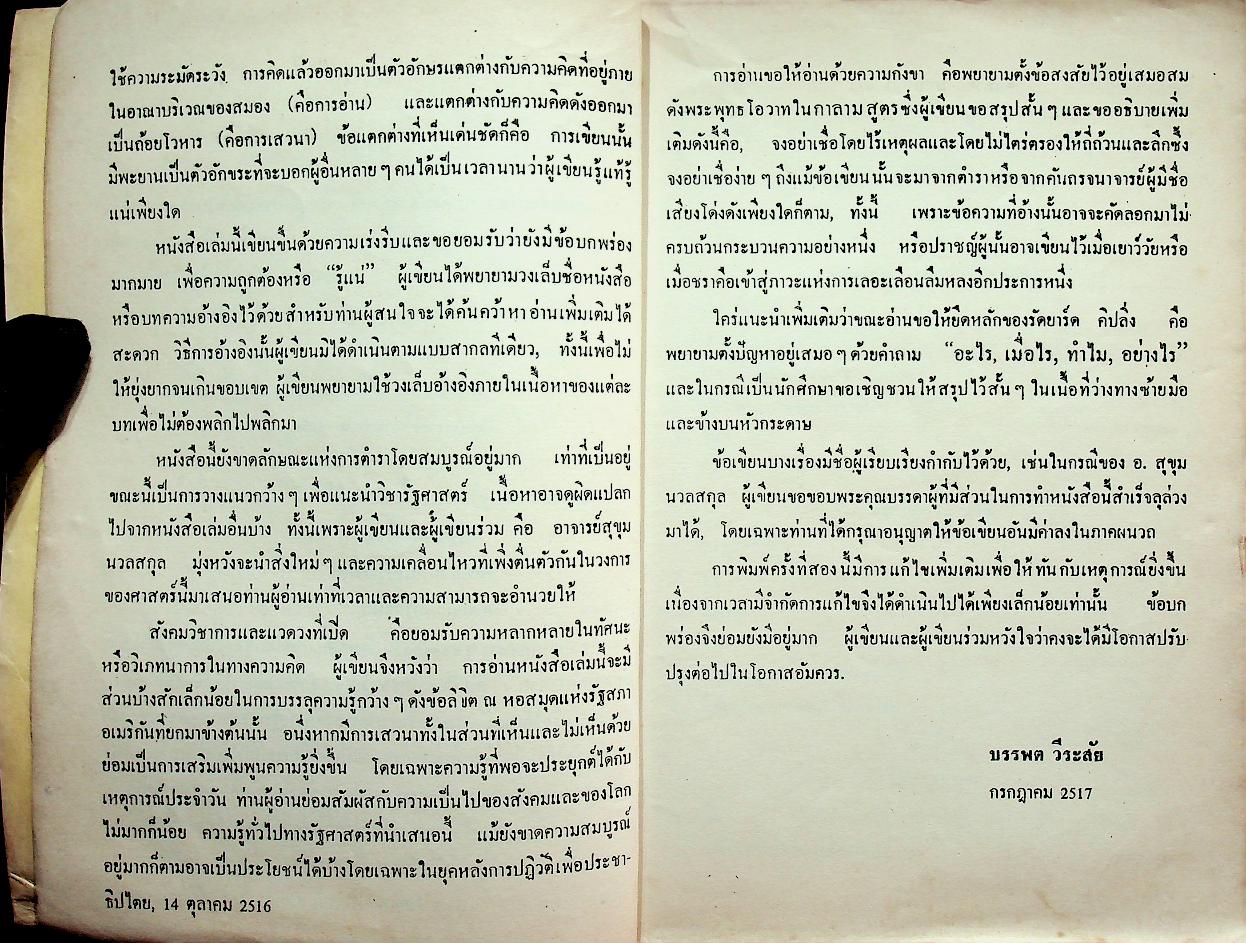 ใช้ความระมัดระวัง การคิดแล้วออกมาเป็นตัวอักษรแตกต่างกับความคิดที่อยู่ภาย
ในอาณาบริเวณของสมอง (คือการอ่าน) และแตกต่างกับความคิดดังออกมา
เป็นถ้อยโวหาร (คือการเสวนา) ข้อแตกต่างที่เห็นเด่นชัดก็คือ การเขียนนั้น
มีพะยานเป็นตัวอักขระที่จะบอกผู้อื่นหลาย ๆ คนได้เป็นเวลานานว่าผู้เขียนรู้แท้รู้
แน่เพียงใด
หนังสือเล่มนี้เขียนขึ้นด้วยความเร่งรีบและขอยอมรับว่ายังมีข้อบกพร่อง
มากมาย เพื่อความถูกต้องหรือ “รู้แน่” ผู้เขียนได้พยายามวงเล็บชื่อหนังสือ
หรือบทความอ้างอิงไว้ด้วยสำหรับท่านผู้สนใจจะได้ค้นคว้าหาอ่านเพิ่มเติมได้
สะดวก วิธีการอ้างอิงนั้นผู้เขียนมิได้ดำเนินตามแบบสากลทีเดียว, ทั้งนี้เพื่อไม่
ให้ยุ่งยากจนเกินขอบเขต ผู้เขียนพยายามใช้วงเล็บอ้างอิงภายในเนื้อหาของแต่ละ
บทเพื่อไม่ต้องพลิกไปพลิกมา
หนังสือนี้ยังขาดลักษณะแห่งการตำราโดยสมบูรณ์อยู่มาก เท่าที่เป็นอยู่
ขณะนี้เป็นการวางแนวกว้าง ๆ เพื่อแนะนำวิชารัฐศาสตร์ เนื้อหาอาจดูผิดแปลก
ไปจากหนังสือเล่มอื่นบ้าง ทั้งนี้เพราะผู้เขียนและผู้เขียนร่วม คือ อาจารย์สุขุม
นวลสกุล มุ่งหวังจะนำสิ่งใหม่ ๆ และความเคลื่อนไหวที่เพิ่งตื่นตัวกันในวงการ
ของศาสตร์นี้มาเสนอท่านผู้อ่านเท่าที่เวลาและความสามารถจะอำนวยให้
สังคมวิชาการและแวดวงที่เปิด คือยอมรับความหลากหลายในทัศนะ
หรือวิเภทนาการในทางความคิด ผู้เขียนจึงหวังว่า การอ่านหนังสือเล่มนี้จะมี
ส่วนบ้างสักเล็กน้อยในการบรรลุความรู้กว้าง ๆ ดังข้อลิขิต ณ หอสมุดแห่งรัฐสภา
อเมริกันที่ยกมาข้างต้นนั้น อนึ่งหากมีการเสวนาทั้งในส่วนที่เห็นและไม่เห็นด้วย
ย่อมเป็นการเสริมเพิ่มพูนความรู้ยิ่งขึ้น โดยเฉพาะความรู้ที่พอจะประยุกต์ได้กับ
เหตุการณ์ประจำวัน ท่านผู้อ่านย่อมสัมผัสกับความเป็นไปของสังคมและของโลก
ไม่มากก็น้อย ความรู้ทั่วไปทางรัฐศาสตร์ที่นำเสนอนี้ แม้ยังขาดความสมบูรณ์
อยู่มากก็ตามอาจเป็นประโยชน์ได้บ้างโดยเฉพาะในยุคหลังการปฏิวัติเพื่อประชา-
ธิปไตย, 14 ตุลาคม 2516
การอ่านขอให้อ่านด้วยความกังขา คือพยายามตั้งข้อสงสัยไว้อยู่เสมอสม
ดังพระพุทธโอวาทในกาลามสูตรซึ่งผู้เขียนขอสรุปสั้น ๆ และขออธิบายเพิ่ม
เติมดังนี้คือ, จงอย่าเชื่อโดยไร้เหตุผลและโดยไม่ไตร่ตรองให้ถี่ถ้วนและลึกซึ้ง
จงอย่าเชื่อง่าย ๆ ถึงแม้ข้อเขียนนั้นจะมาจากตำราหรือจากคันถรจนาจารย์ผู้มีชื่อ
เสียงโด่งดังเพียงใดก็ตาม, ทั้งนี้ เพราะข้อความที่อ้างนั้นอาจจะคัดลอกมาไม่
ครบถ้วนกระบวนความอย่างหนึ่ง หรือปราชญ์ผู้นั้นอาจเขียนไว้เมื่อเยาว์วัยหรือ
เมื่อชราคือเข้าสู่ภาวะแห่งการเลอะเลือนลืมหลงอีกประการหนึ่ง
ใคร่แนะนำเพิ่มเติมว่าขณะอ่านขอให้ยึดหลักของรัดยาร์ด คิปลิ่ง คือ
พยายามตั้งปัญหาอยู่เสมอ ๆ ด้วยคำถาม “อะไร, เมื่อไร, ทำไม, อย่างไร”
และในกรณีเป็นนักศึกษาขอเชิญชวนให้สรุปไว้สั้น ๆ ในเนื้อที่ว่างทางซ้ายมือ
และข้างบนหัวกระดาษ
ข้อเขียนบางเรื่องมีชื่อผู้เรียบเรียงกำกับไว้ด้วย, เช่นในกรณีของ อ. สุขุม
นวลสกุล ผู้เขียนขอขอบพระคุณบรรดาผู้ที่มีส่วนในการทำหนังสือนี้สำเร็จลุล่วง
มาได้, โดยเฉพาะท่านที่ได้กรุณาอนุญาตให้ข้อเขียนอันมีค่าลงในภาคผนวก
การพิมพ์ครั้งที่สองนี้มีการแก้ไขเพิ่มเติมเพื่อให้ทันกับเหตุการณ์ยิ่งขึ้น
เนื่องจากเวลามีจำกัดการแก้ไขจึงได้ดำเนินไปได้เพียงเล็กน้อยเท่านั้น ข้อบก
พร่องจึงย่อมยังมีอยู่มาก ผู้เขียนและผู้เขียนร่วมหวังใจว่าคงจะได้มีโอกาสปรับ
ปรุงต่อไปในโอกาสอันควร.
บรรพต วีระสัย
กรกฎาคม 2517